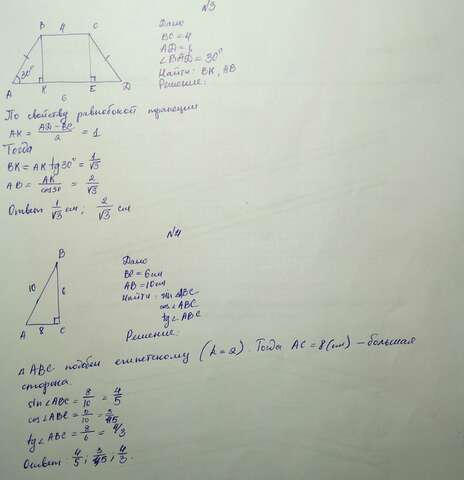 №3
B 4 C
30°
A K E D
6
Дано
BC = 4
AD = 6
∠BAD = 30°
Найти: BK, AB
Решение:
По свойству равнобокой трапеции
AK = (AD - BC)/2 = 1
Тогда
BK = AK tg30° = 1/√3
AB = AK/cos30 = 2/√3
Ответ 1/√3 см; 2/√3 см
№4
B
10 6
A 8 C
Дано
BC = 6см
AB = 10см
Найти: sin∠ABC
cos∠ABC
tg∠ABC
Решение:
△ABC подобен египетскому (k=2). Тогда AC = 8(см) – большая
сторона.
sin∠ABC = 8/10 = 4/5
cos∠ABC = 6/10 = 3/5
tg∠ABC = 8/6 = 4/3
Ответ: 4/5; 3/5; 4/3.